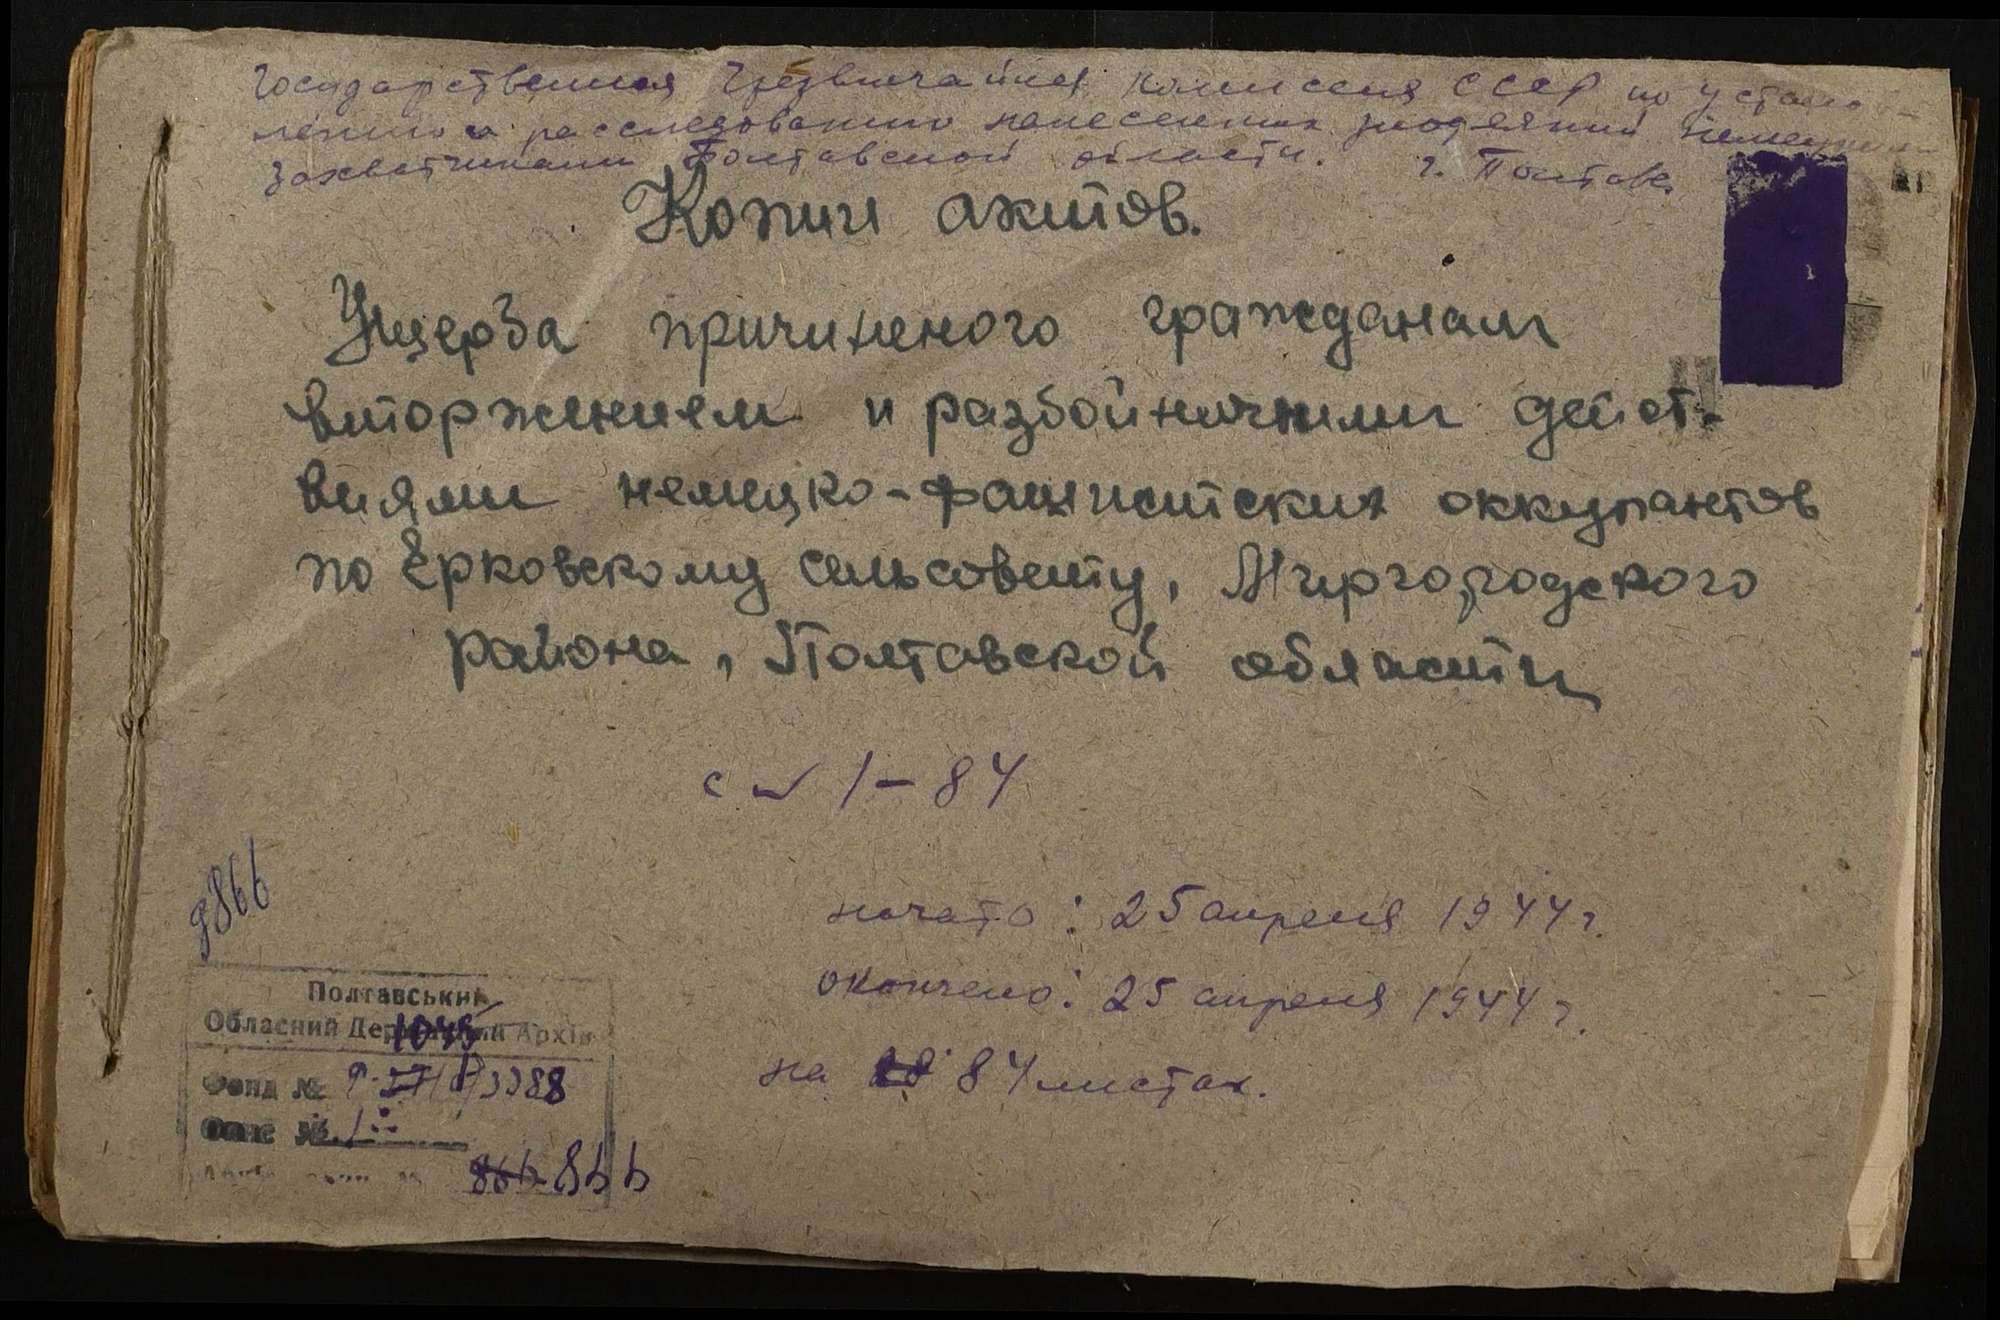 Государственная Чрезвычайная комиссия СССР по установ-
лению и расследованию нанесенных злодеяний немецкими
захватчиками Полтавской области. г. Полтава.
Копии актов.
Ущерба причиненого гражданам
вторжением и разбойничими дейст-
виями немецко-фашистских оккупантов
по Ерковскому сельсовету, Миргородского
района, Полтавской области
с № 1-84
начато: 25 апреля 1944 г.
окончено: 25 апреля 1944 г.
на 84 листах.
866
Полтавський
Обласний Державний Архів
1045
Фонд № Р. 3388
Опис № 1
866